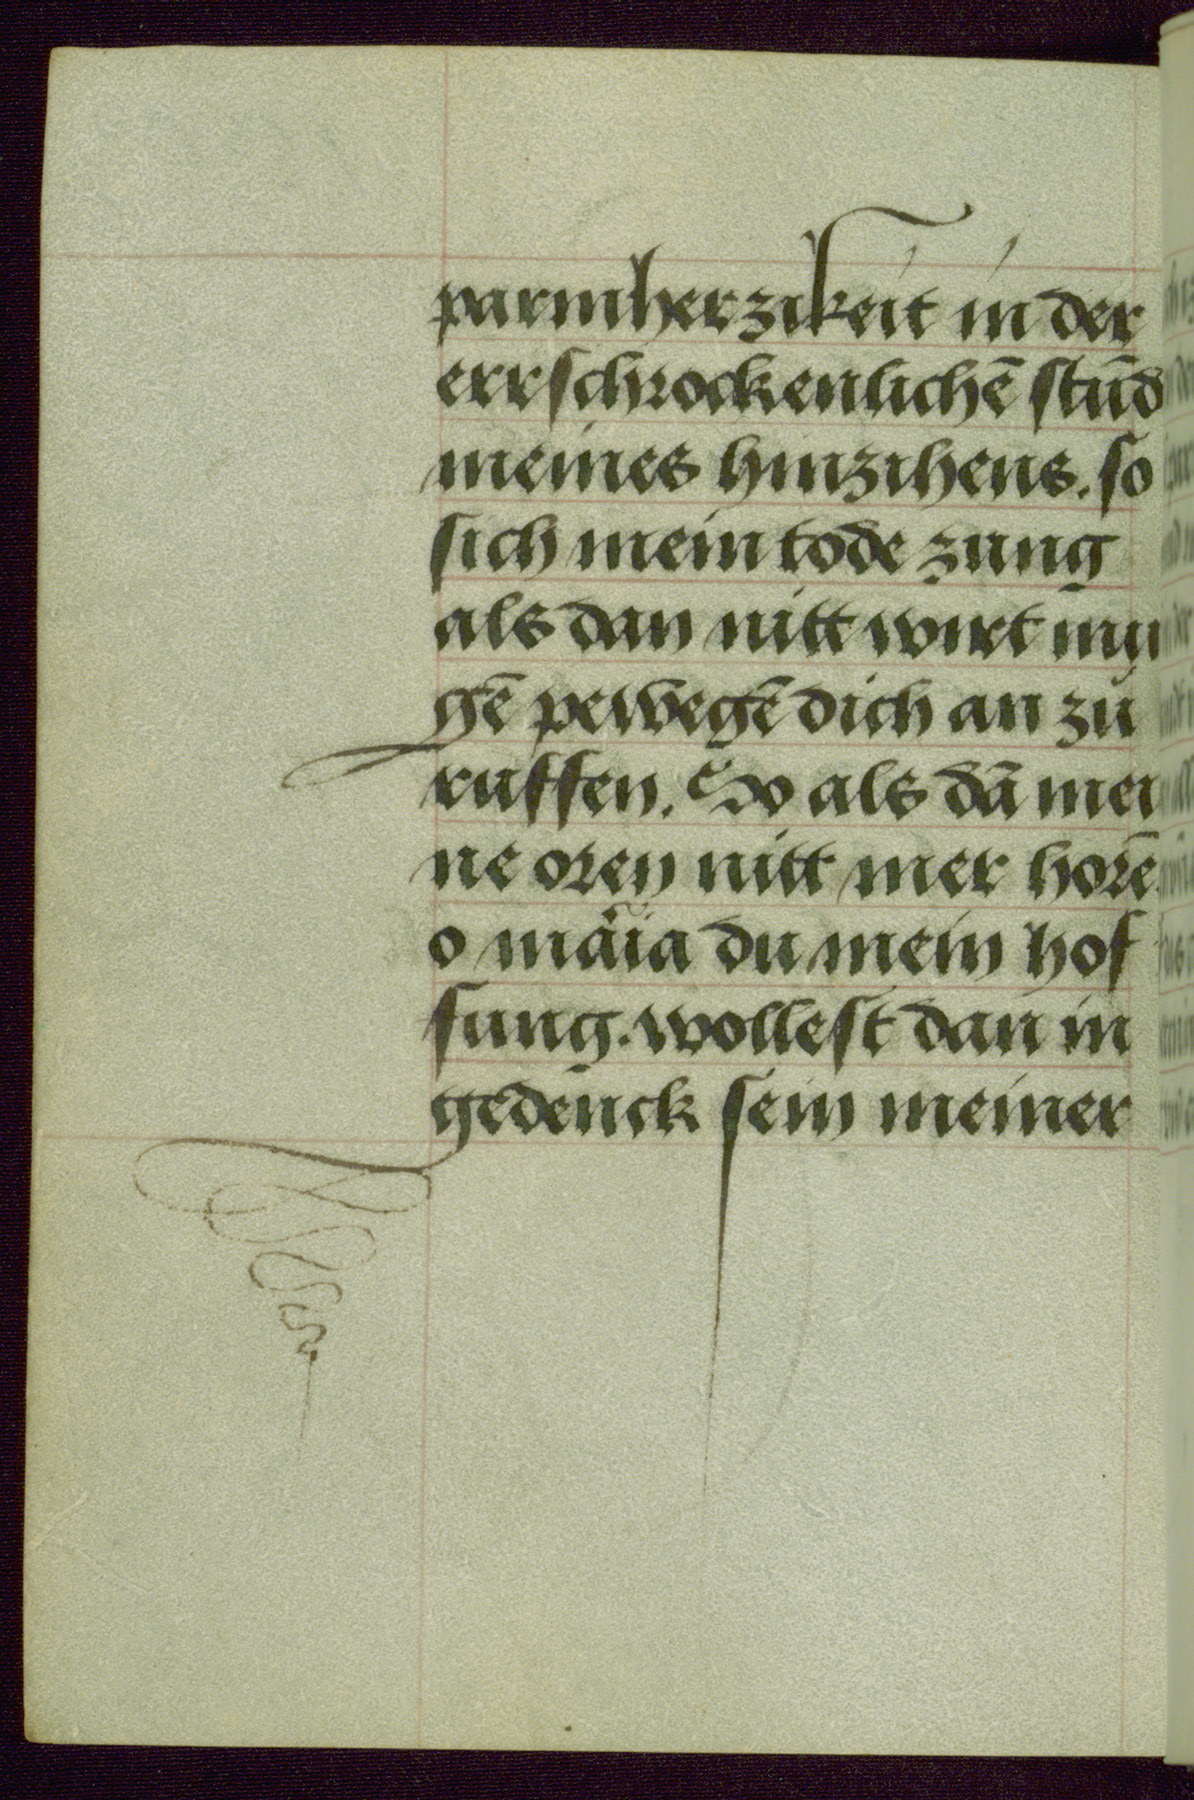 parmherzikeit in der
errschrockenlichē stūd
meines hinzihens. so
sich mein tode zung
als dan nitt wirt mu
gē pewegē dich an zu
ruffen. So als dā mei
ne oren nitt mer horē
o maria du mein hof
fung. wollest dan in
gedenck sein meiner